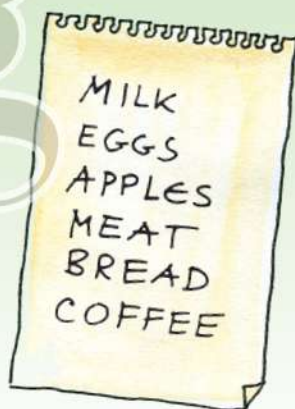 MILK
EGGS
APPLES
MEAT
BREAD
COFFEE